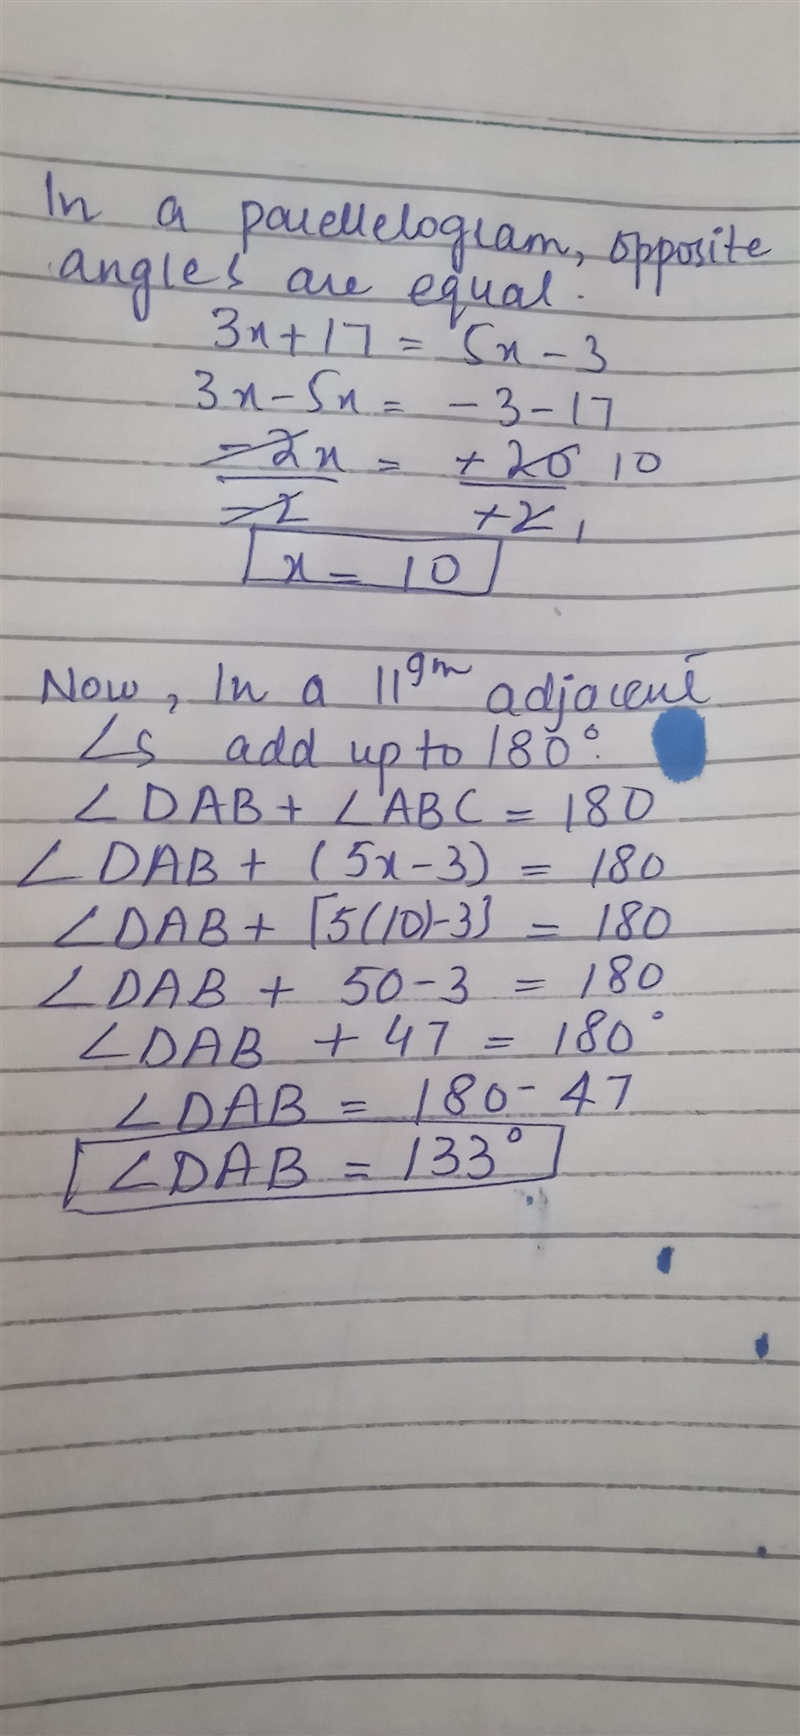 In a parellelogram, opposite
angles are equal.
3x + 17 = 5x - 3
3x - 5x = - 3 - 17
-2x = +20 10
-2 +2 1
x = 10
Now, In a 11gm adjacent
∠s add up to 180°.
∠DAB + ∠ABC = 180
∠DAB + (5x - 3) = 180
∠DAB + [5(10) - 3] = 180
∠DAB + 50 - 3 = 180
∠DAB + 47 = 180°
∠DAB = 180 - 47
∠DAB = 133°